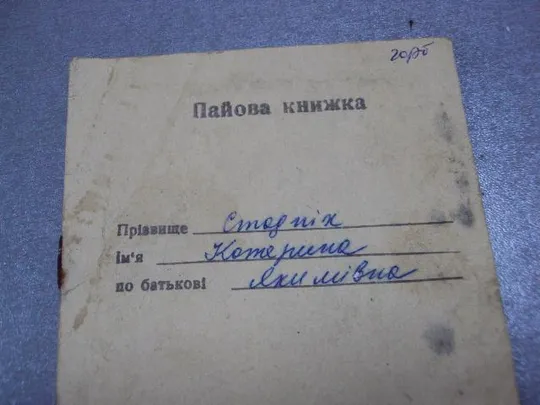 Пайова книжка
Прізвище Стаднік
Ім'я Катерина
по батькові Якимівна